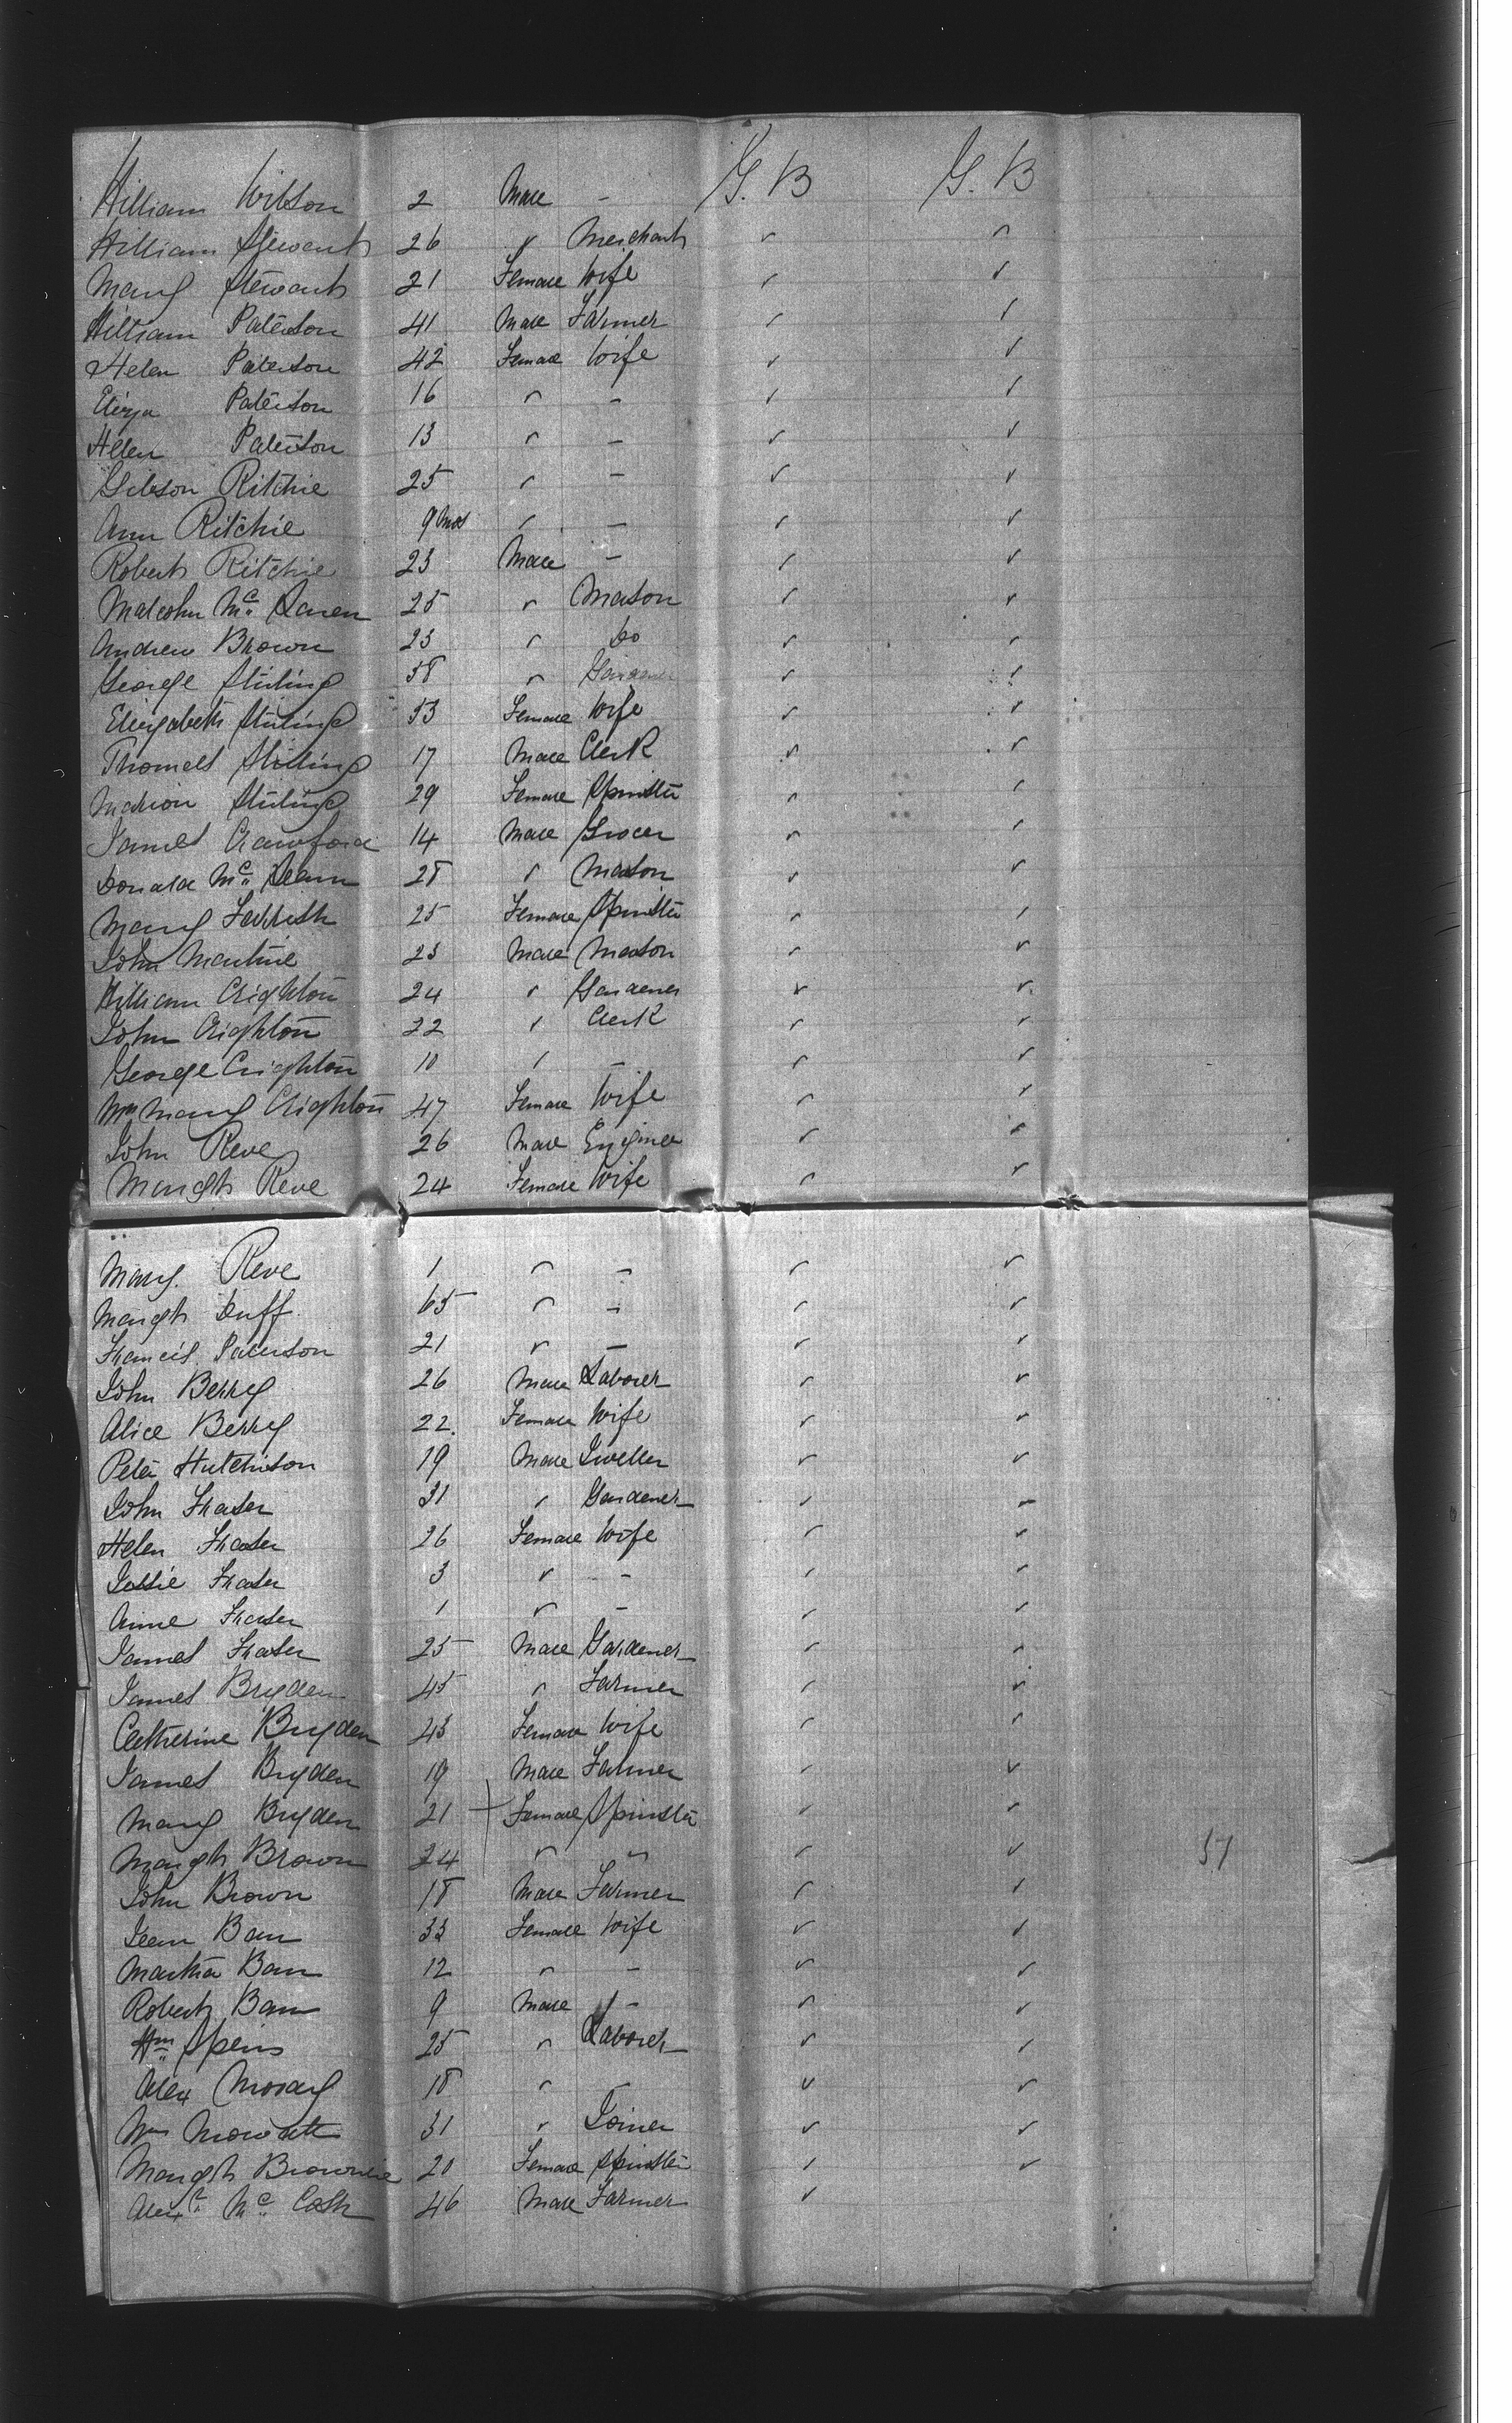 William Wilson 2 Male - G. B G. B
William Stewart 26 " Merchant " "
Mary Stewart 21 Female Wife " "
William Paterson 41 Male Farmer " "
Helen Paterson 42 Female Wife " "
Eliza Paterson 16 " - " "
Helen Paterson 13 " - " "
Gibson Ritchie 25 " - " "
Ann Ritchie 9 Mos " - " "
Robert Ritchie 23 Male - " "
Malcolm Mc Laren 25 " Mason " "
Andrew Brown 23 " Do " "
George Stirling 58 " " "
Elizabeth Stirling 53 Female Wife " "
Thomas Stirling 17 Male Clerk " "
Marion Stirling 29 Female Spinster " "
James Crawford 14 Male Grocer " "
Donald Mc Lean 28 " Mason " "
Mary 25 Female Spinster " "
John Martine 23 Male Mason " "
William Crighton 24 " Gardener " "
John Crighton 22 " Clerk " "
George Crighton 10 " - " "
Mrs Mary Crighton 47 Female Wife " "
John Reve 26 Male Engineer " "
Margt Reve 24 Female Wife " "
Mary. Reve 1 " - " "
Margt Duff 65 " - " "
Francis Paterson 21 " - " "
John Berry 26 Male Laborer " "
Alice Berry 22. Female Wife " "
Peter Hutchison 19 Male Jweller " "
John Fraser 31 " Gardener " "
Helen Fraser 26 Female Wife " "
Jessie Fraser 3 " - " "
Anne Fraser 1 " - " "
James Fraser 25 Male Gardener " "
James Bryden 45 " Farmer " "
Catherine Bryden 43 Female Wife " "
James Bryden 19 Male Farmer " "
Mary Bryden 21 Female Spinster " "
Margt Brown 24 " " " " 51
John Brown 18 Male Farmer " "
Jean Barr 33 Female Wife " "
Martha Barr 12 " - " "
Robert Barr 9 Male - " "
Wm Speirs 25 " Laborer " "
Alex Moray 18 " - " "
Wm Mowatt 31 " Joiner " "
Margt Brownlie 20 Female Spinster " "
Alexr Mc Cosh 46 Male Farmer "